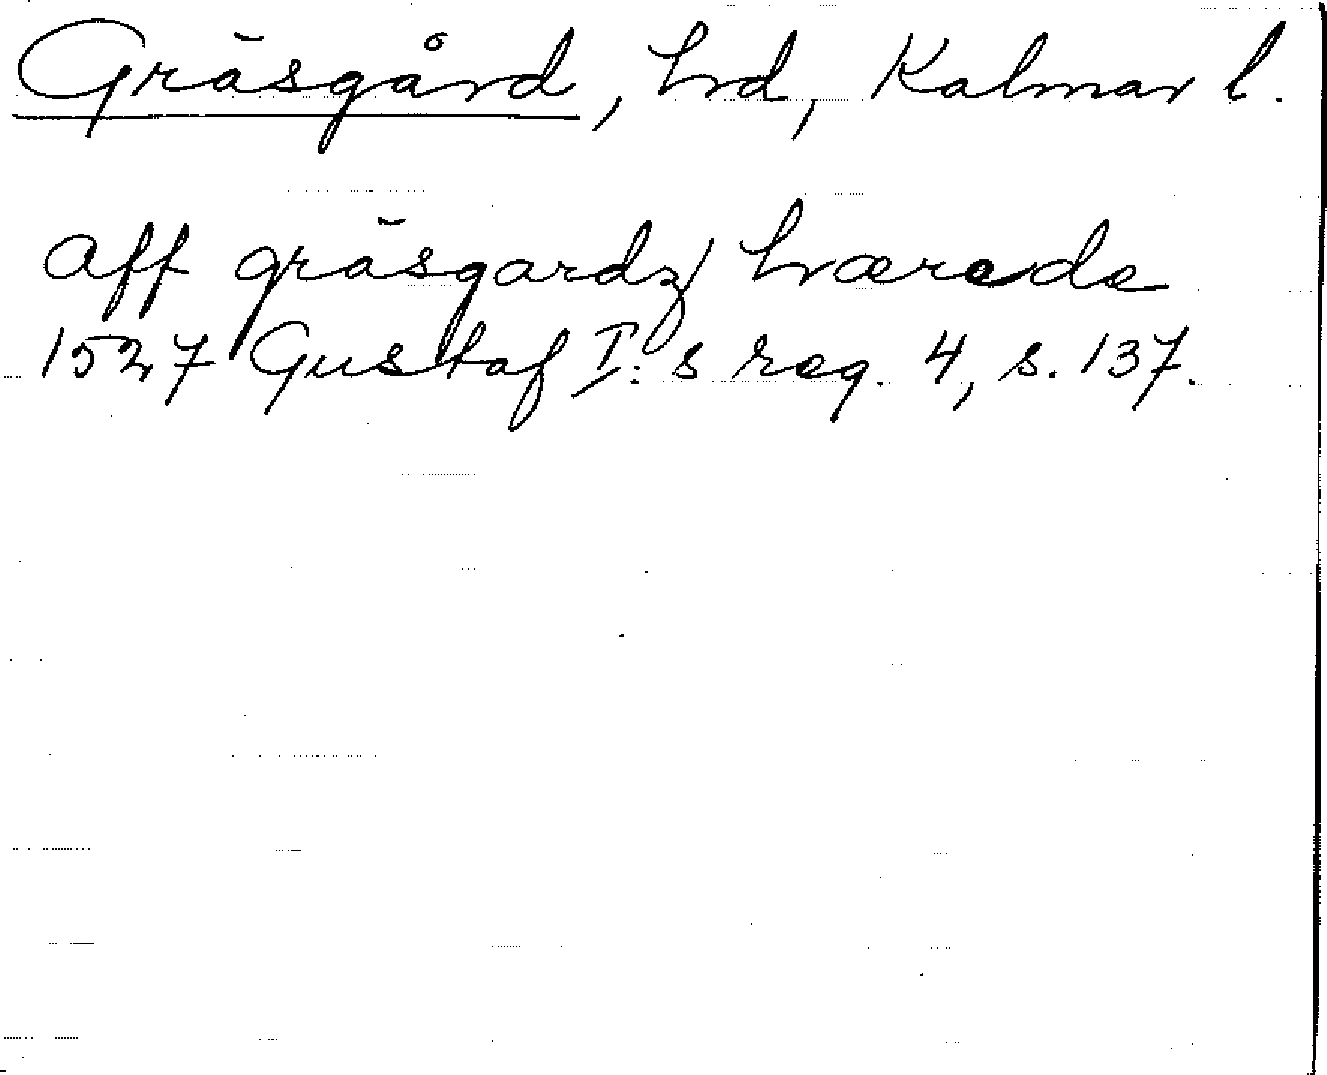 Gräsgård, hd, Kalmar l.
aff gräsgardz hærede
1527 Gustaf I:s reg. 4, s. 137.